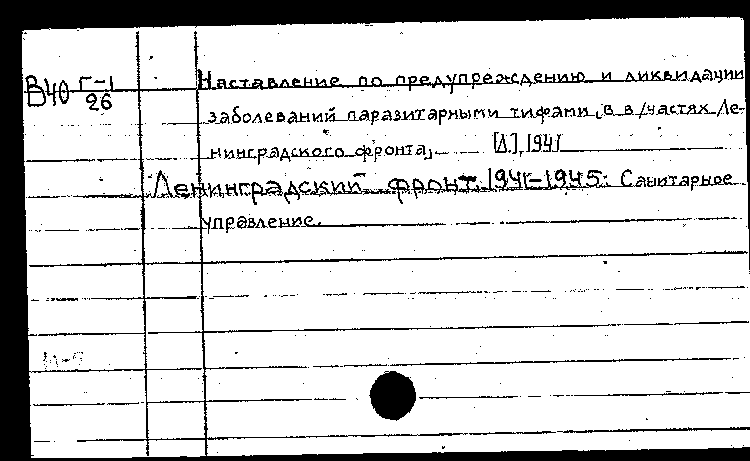 В40 Г-1/26
Наставление по предупреждению и ликвидации
заболеваний паразитарными тифами, в в/частях Ле-
нинградского фронта,. [Л], 1941
Ленинградский фронт. 1941-1945. Санитарное
управление.